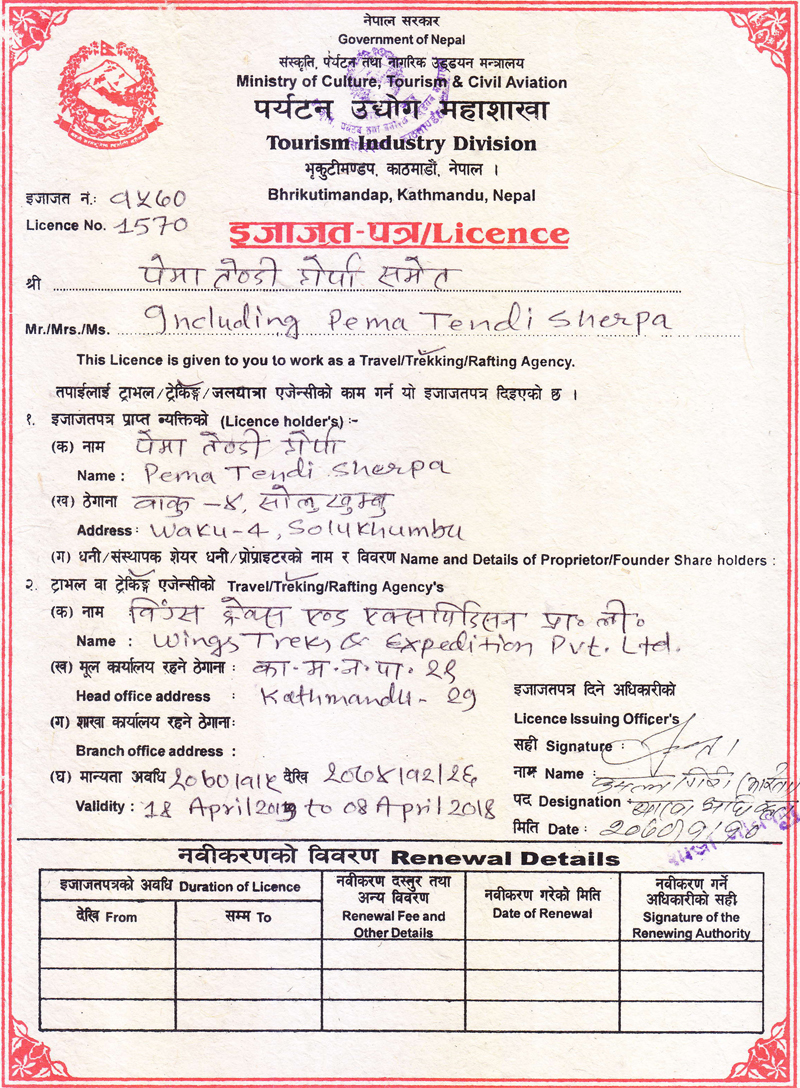 नेपाल सरकार
Government of Nepal
संस्कृति, पर्यटन तथा नागरिक उड्डयन मन्त्रालय
Ministry of Culture, Tourism & Civil Aviation
पर्यटन उद्योग महाशाखा
Tourism Industry Division
भृकुटीमण्डप, काठमाडौं, नेपाल ।
Bhrikutimandap, Kathmandu, Nepal
इजाजत नं.: १५७०
Licence No. 1570
इजाजत-पत्र/Licence
श्री पेमा तेण्डी शेर्पा समेत
Mr./Mrs./Ms. Including Pema Tendi Sherpa
This Licence is given to you to work as a Travel/Trekking/Rafting Agency.
तपाईलाई ट्राभल/ट्रेकिङ्ग/जलयात्रा एजेन्सीको काम गर्न यो इजाजतपत्र दिइएको छ ।
१. इजाजतपत्र प्राप्त व्यक्तिको (Licence holder's) :-
(क) नाम पेमा तेण्डी शेर्पा
Name : Pema Tendi Sherpa
(ख) ठेगाना वाकु -४, सोलुखुम्बु
Address : Waku-4, Solukhumbu
(ग) धनी/संस्थापक शेयर धनी/प्रोप्राइटरको नाम र विवरण Name and Details of Proprietor/Founder Share holders :
२. ट्राभल वा ट्रेकिङ्ग एजेन्सीको Travel/Treking/Rafting Agency's
(क) नाम विंग्स ट्रेक्स एण्ड एक्सपिडिसन प्रा॰ ली॰
Name : Wings Treks & Expedition Pvt. Ltd.
(ख) मूल कार्यालय रहने ठेगाना : का.म.न.पा. २९
Head office address : Kathmandu - 29
(ग) शाखा कार्यालय रहने ठेगाना:
Branch office address :
(घ) मान्यता अवधि देखि २०७४/१२/२६
Validity : 18 April to 08 April 2018
इजाजतपत्र दिने अधिकारीको
Licence Issuing Officer's
सही Signature :
नाम Name :
पद Designation शाखा अधिकृत
मिति Date :
नवीकरणको विवरण Renewal Details
इजाजतपत्रको अवधि Duration of Licence
देखि From
सम्म To
नवीकरण दस्तुर तथा
अन्य विवरण
Renewal Fee and
Other Details
नवीकरण गरेको मिति
Date of Renewal
नवीकरण गर्ने
अधिकारीको सही
Signature of the
Renewing Authority